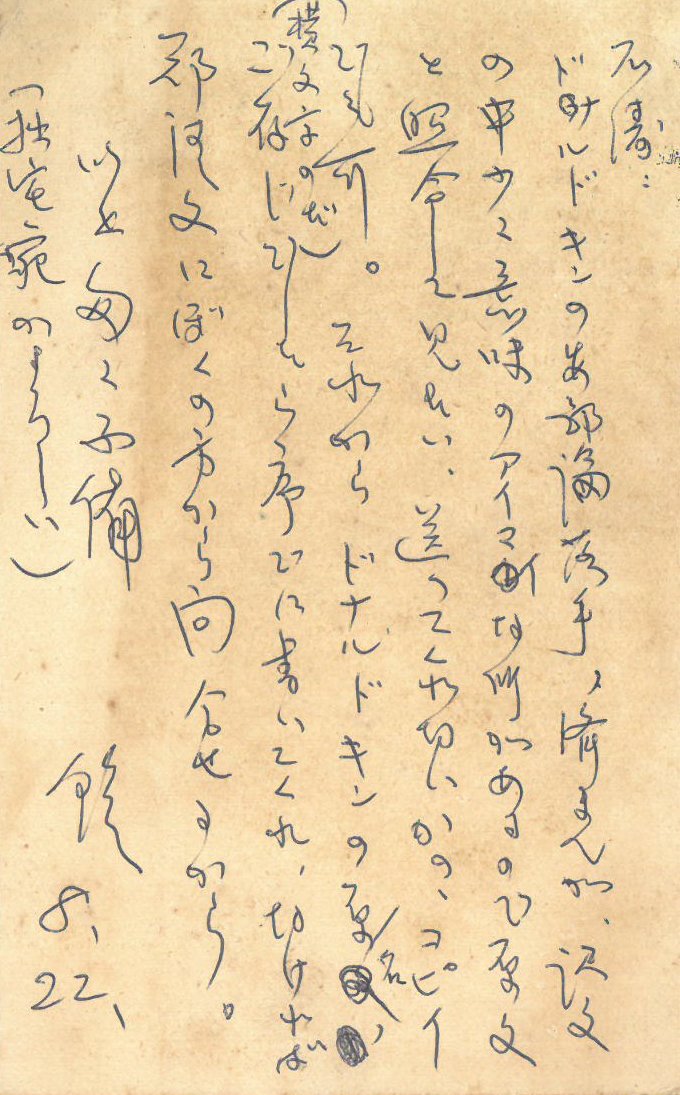 ドナルドキンの安部論落手、済まんが、訳文
の中少々意味のアイマイな所があるので原文
と照合して見たい、送ってくれないかの、コピイ
でも可。それから ドナルドキンの原名、
(横文字のだ)
ご存じでしたら序でに書いてくれ、なければ
にぼくの方から問合せるから。
以上匆々不備
8、22、
(拙宅宛がよろしい)